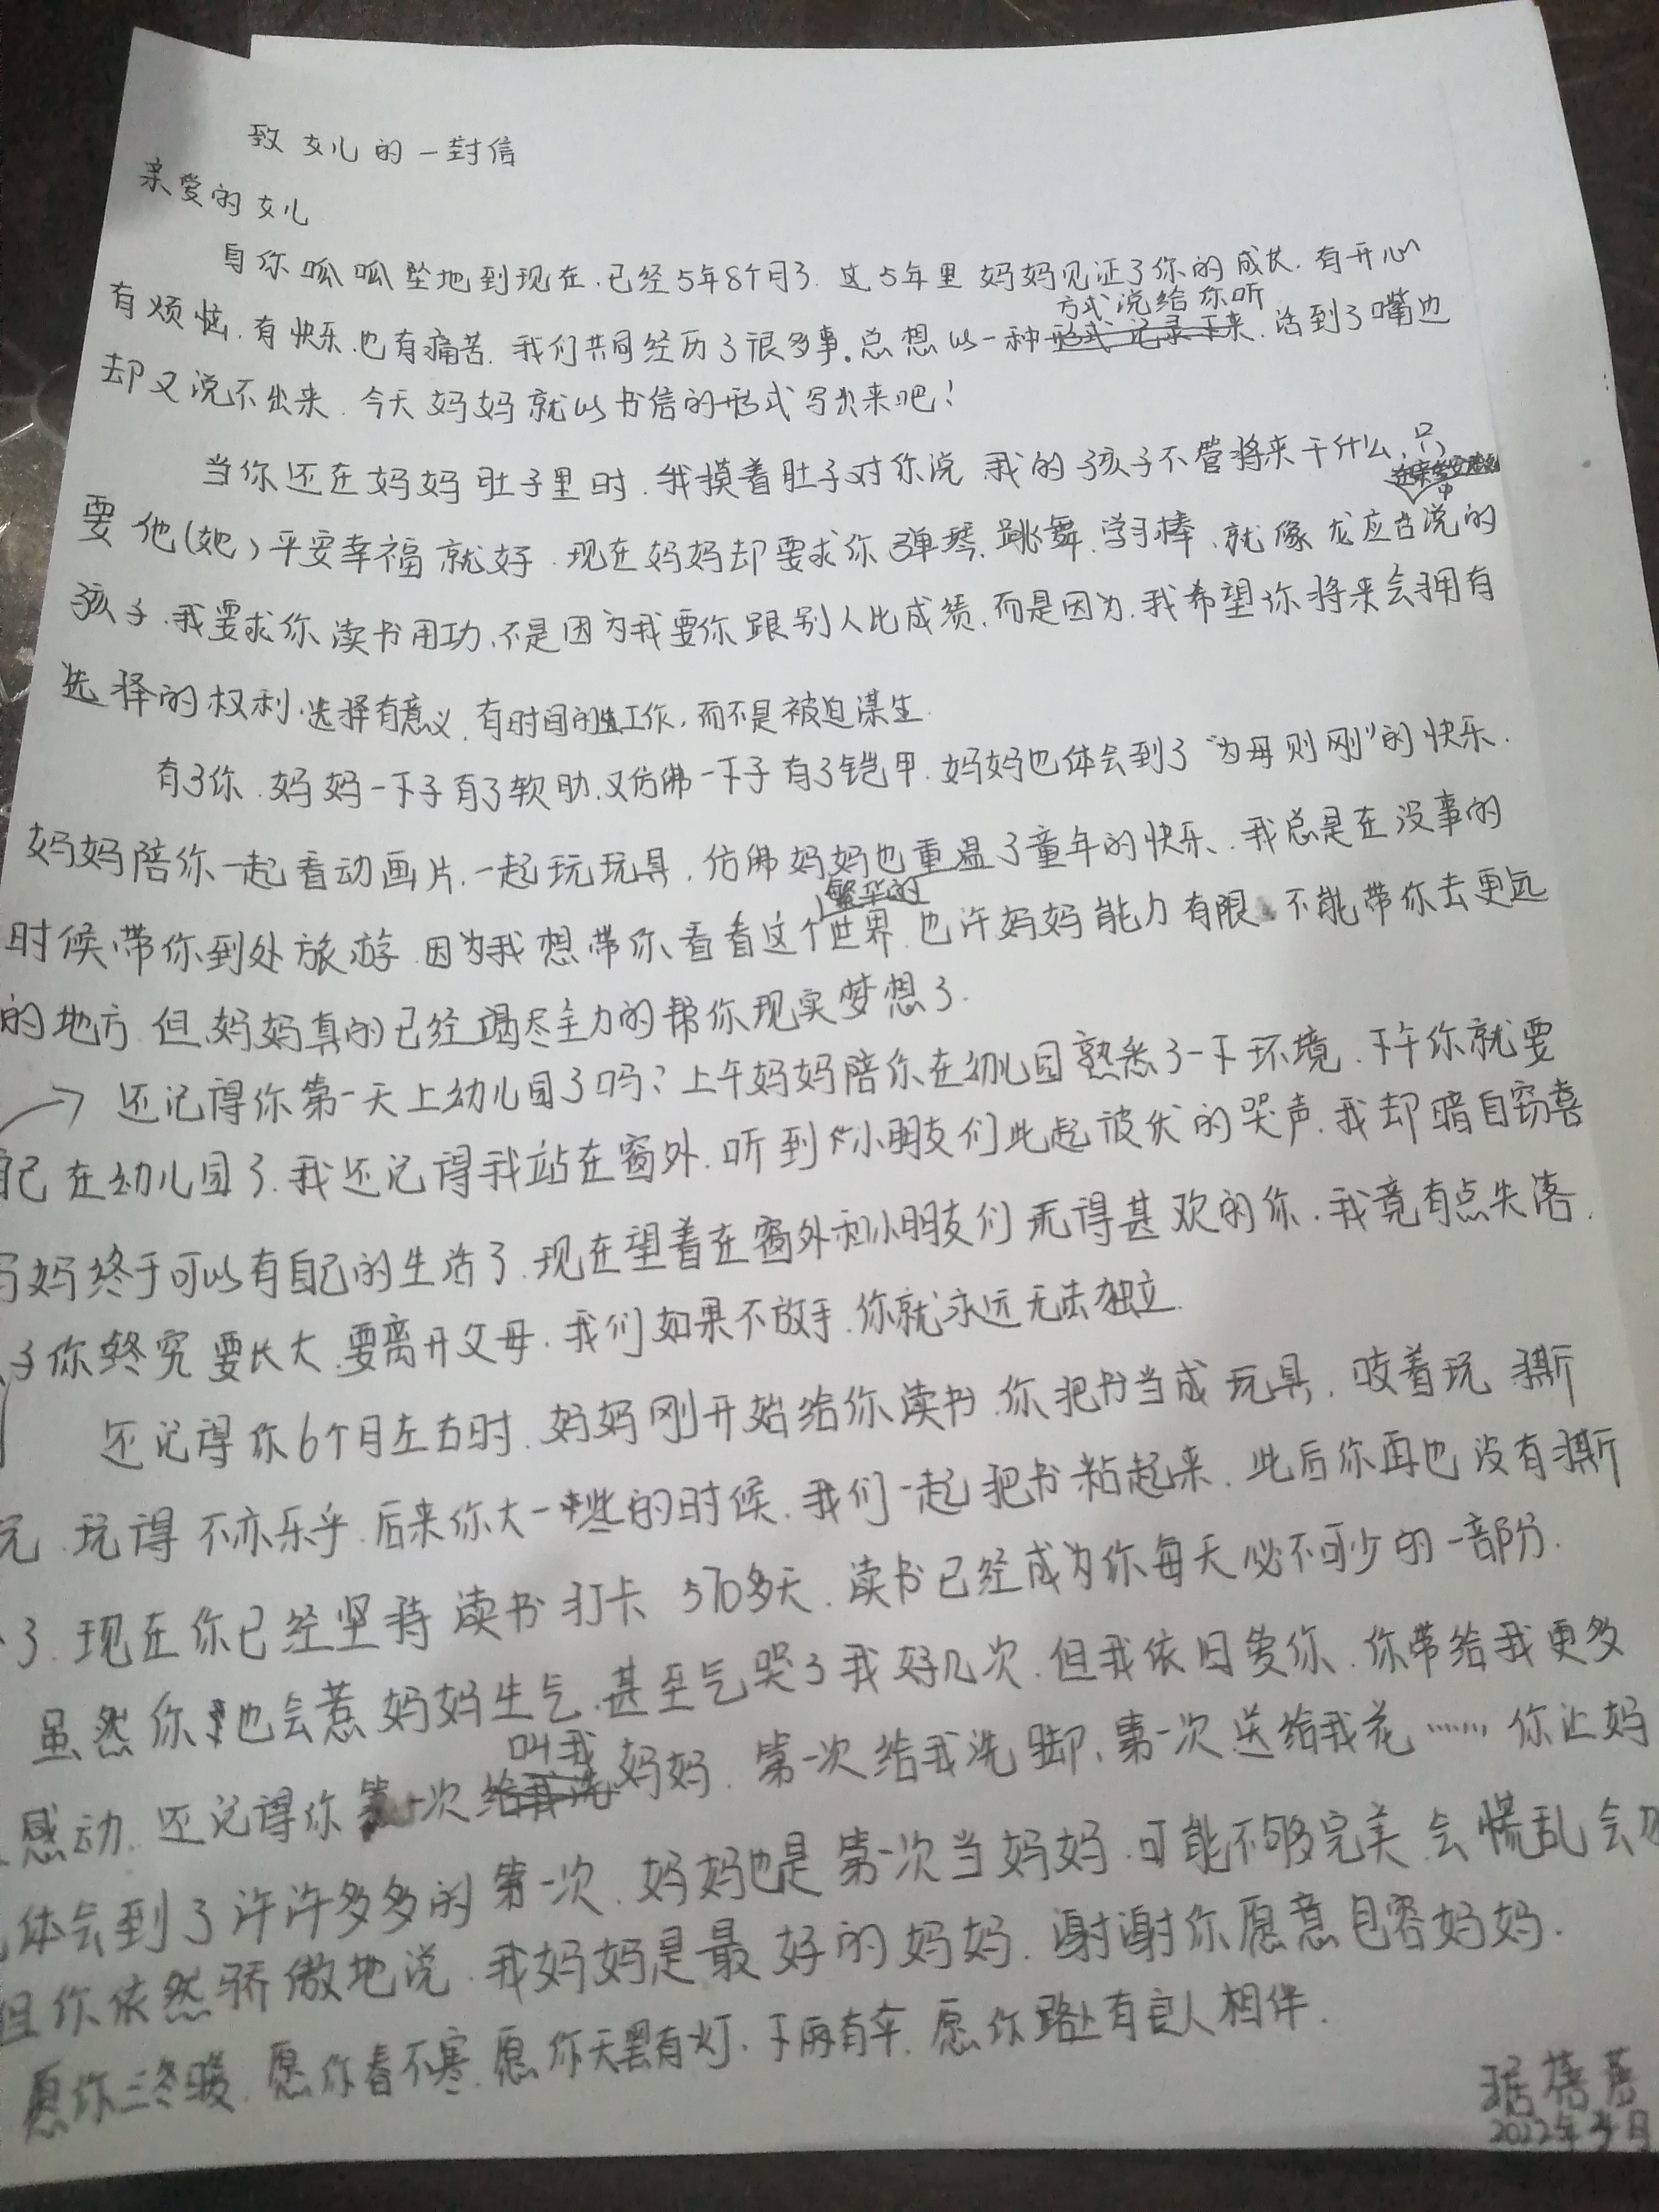 致女儿的一封信
亲爱的女儿
自你呱呱坠地到现在.已经5年8个月了.这5年里妈妈见证了你的成长.有开心
有烦恼.有快乐.也有痛苦.我们共同经历了很多事。总想以一种方式说给你听.话到了嘴边
却又说不出来.今天妈妈就以书信的形式写出来吧!
当你还在妈妈肚子里时.我摸着肚子对你说.我的孩子不管将来干什么,只
要他(她)平安幸福就好.现在妈妈却要求你弹琴.跳舞.学习棒.就像龙应台说的
孩子.我要求你读书用功.不是因为我要你跟别人比成绩.而是因为.我希望你将来会拥有
选择的权利.选择有意义.有时间的工作.而不是被迫谋生.
有了你.妈妈一下子有了软肋.又仿佛一下子有了铠甲.妈妈也体会到了“为母则刚”的快乐.
妈妈陪你一起看动画片.一起玩玩具.仿佛妈妈也重温了童年的快乐.我总是在没事的
时候带你到处旅游.因为我想带你看看这个繁华的世界.也许妈妈能力有限 不能带你去更远
的地方.但妈妈真的已经竭尽全力的帮你现实梦想了.
还记得你第一天上幼儿园了吗?上午妈妈陪你在幼儿园熟悉了一下环境.下午你就要
自己在幼儿园了.我还记得我站在窗外.听到小朋友们此起彼伏的哭声.我却暗自窃喜
妈妈终于可以有自己的生活了.现在望着在窗外和小朋友们玩得甚欢的你.我竟有点失落.
子你终究要长大.要离开父母.我们如果不放手.你就永远无法独立.
还记得你6个月左右时.妈妈刚开始给你读书.你把书当成玩具.咬着玩 撕
玩.玩得不亦乐乎.后来你大一些的时候.我们一起把书粘起来.此后你再也没有撕
了.现在你已经坚持读书打卡570多天.读书已经成为你每天必不可少的一部分.
虽然你也会惹妈妈生气.甚至气哭了我好几次.但我依旧爱你.你带给我更多
感动.还记得你第一次叫我妈妈.第一次给我洗脚.第一次送给我花……你让妈
体会到了许许多多的第一次.妈妈也是第一次当妈妈.可能不够完美.会慌乱会
但你依然骄傲地说.我妈妈是最好的妈妈.谢谢你愿意包容妈妈.
愿你三冬暖.愿你春不寒.愿你天黑有灯.下雨有车.愿你路上有良人相伴.
琚蓓蓓
2022年 月